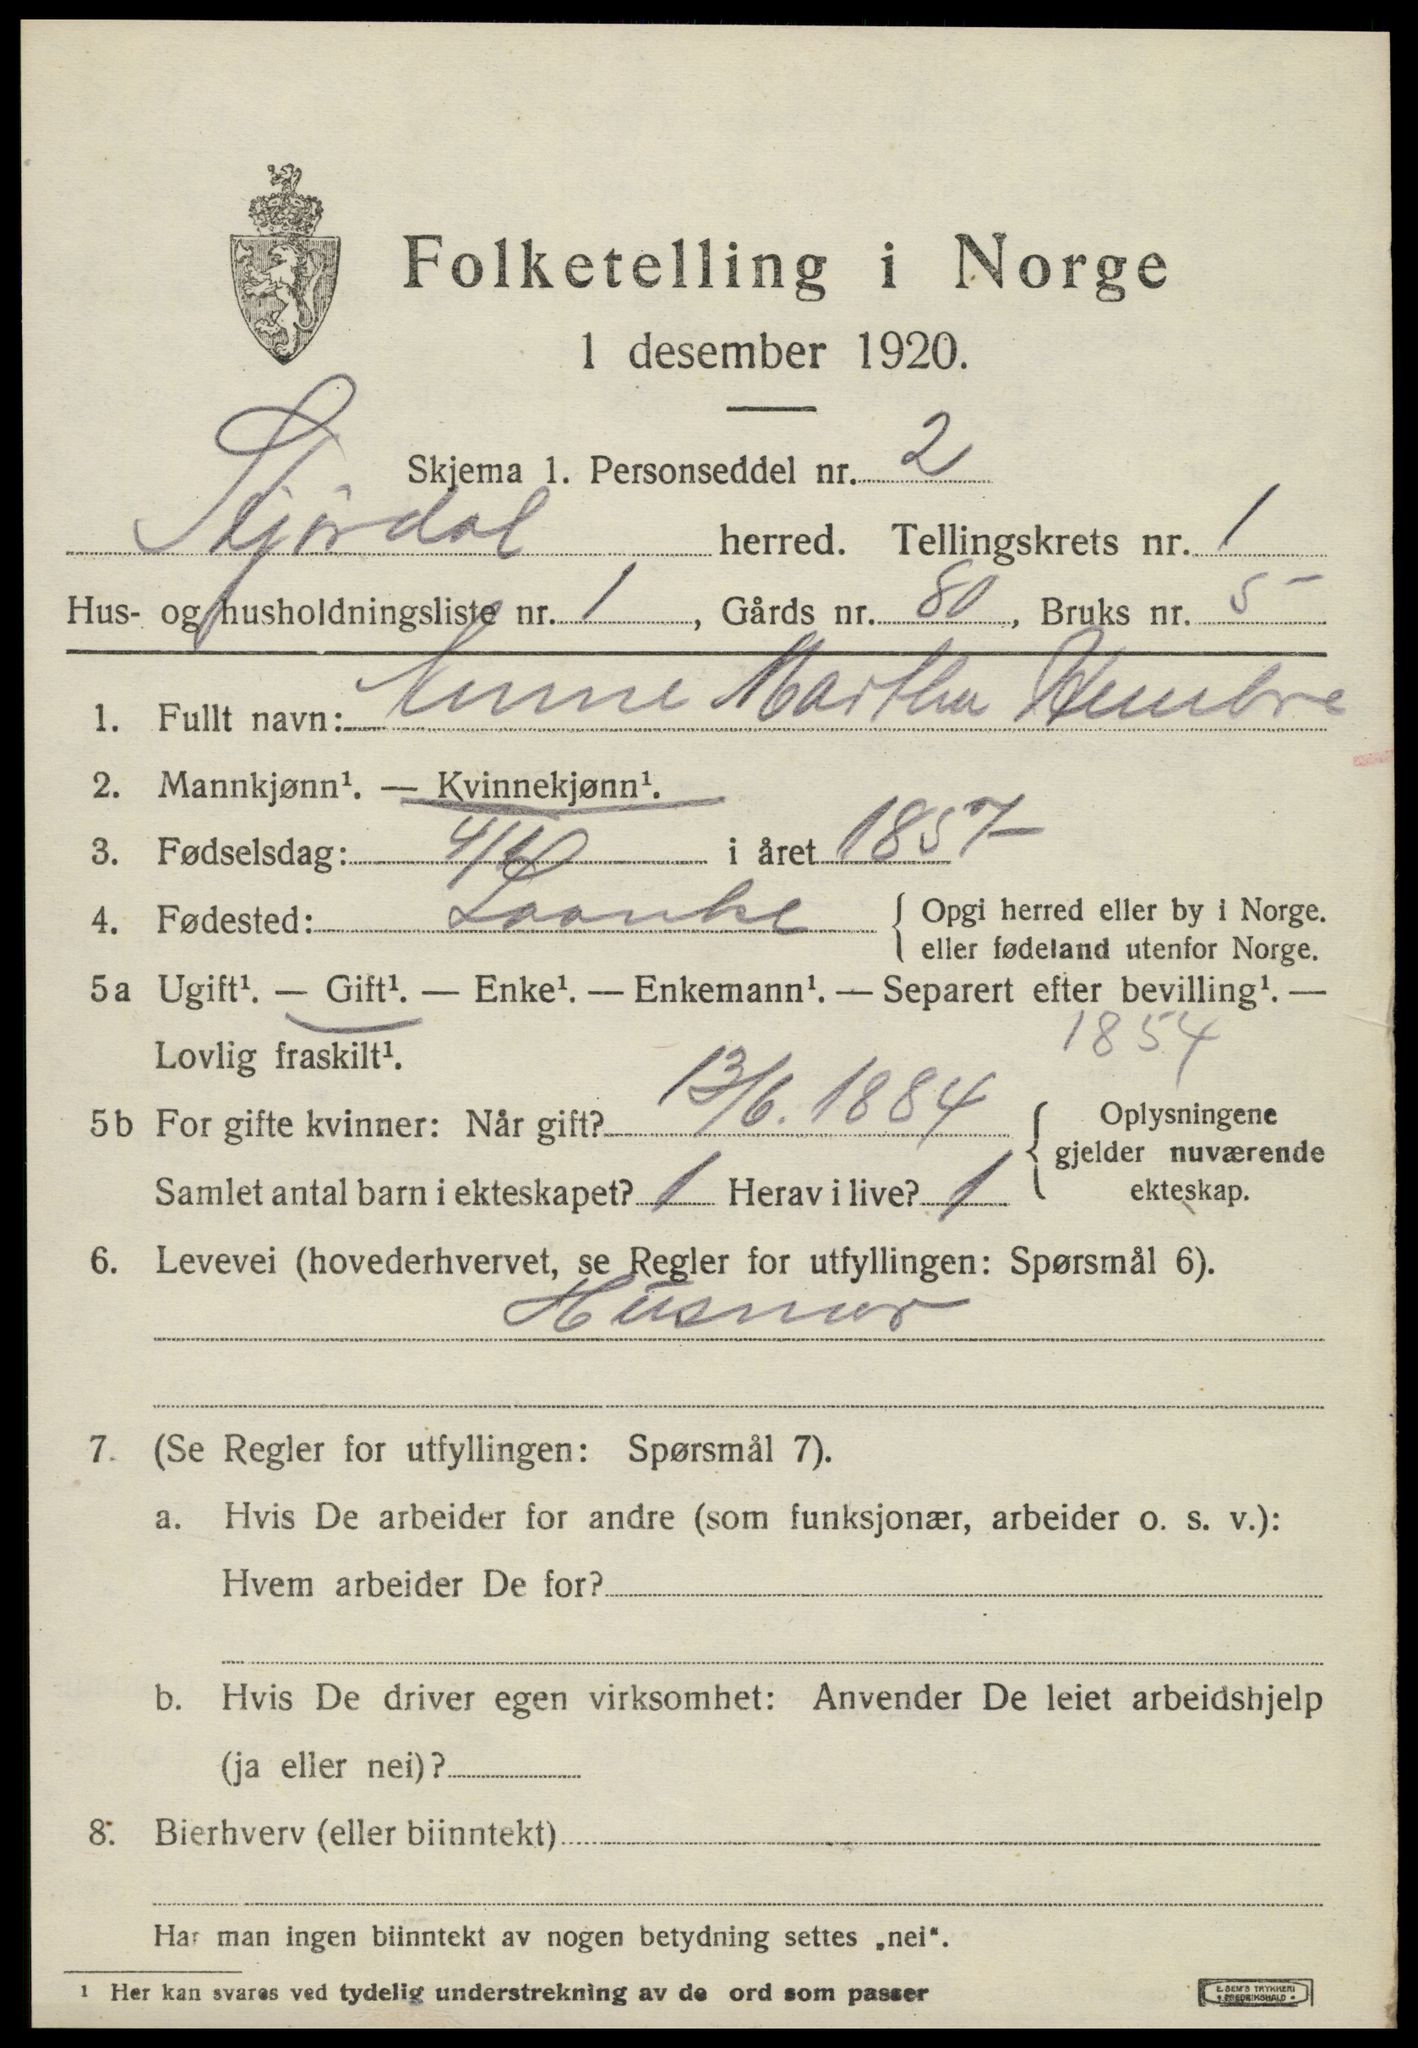 Folketelling i Norge
1 desember 1920.
Skjema 1. Personseddel nr. 2
Stjørdal herred. Tellingskrets nr. 1
Hus- og husholdningsliste nr. 1, Gårds nr. 80, Bruks nr. 5
1. Fullt navn: Anne Martha Hembre
2. Mannkjønn¹. — Kvinnekjønn¹.
3. Fødselsdag: i året 1857
4. Fødested: Laanke { Opgi herred eller by i Norge.
eller fødeland utenfor Norge.
5a Ugift¹. — Gift¹. — Enke¹. — Enkemann¹. — Separert efter bevilling¹. —
Lovlig fraskilt¹. 1854
5b For gifte kvinner: Når gift? 13/6. 1884 { Oplysningene
gjelder nuværende
Samlet antal barn i ekteskapet? 1 Herav i live? 1 ekteskap.
6. Levevei (hovederhvervet, se Regler for utfyllingen: Spørsmål 6).
Husmor
7. (Se Regler for utfyllingen: Spørsmål 7).
a. Hvis De arbeider for andre (som funksjonær, arbeider o. s. v.):
Hvem arbeider De for?
b. Hvis De driver egen virksomhet: Anvender De leiet arbeidshjelp
(ja eller nei)?
8. Bierhverv (eller biinntekt)
Har man ingen biinntekt av nogen betydning settes „nei“.
¹ Her kan svares ved tydelig understrekning av de ord som passer
E. SEM'S TRYKKERI
FREDRIKSHALD